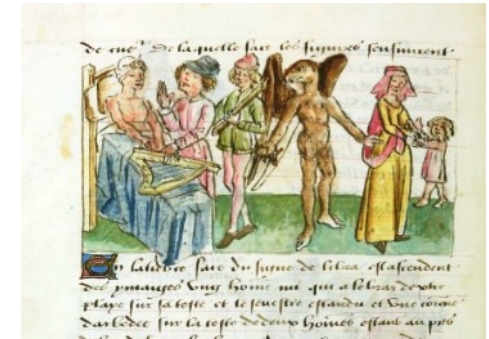 de cue De laquelle face les figures sensuivent
En la tierce face du signe de libra est ascendent
des ymaiges Ung home nu qui a le bras dextre
playe sur sa teste et le senestre estandu et Une corne
sur la teste de deux homes estans au pres